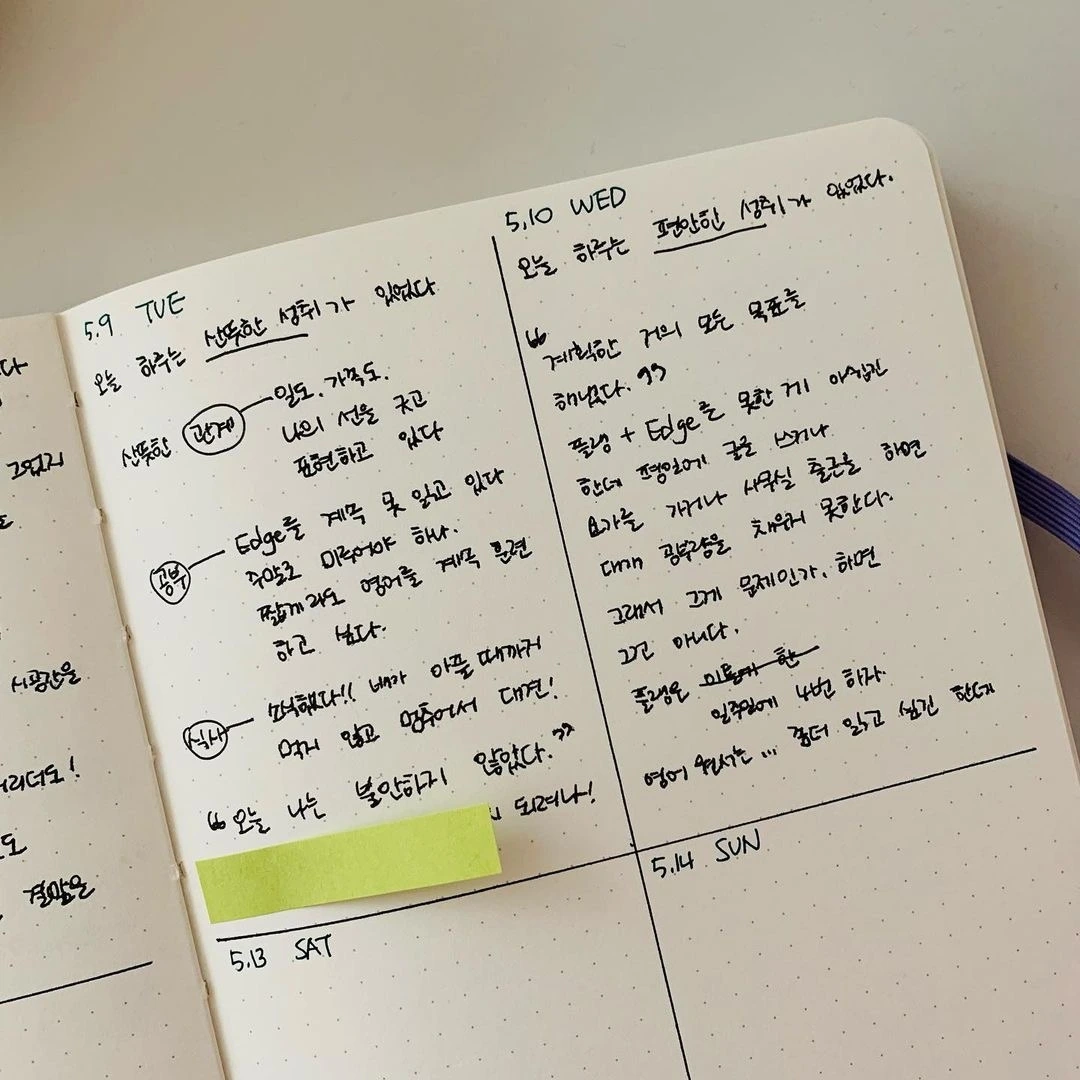 다
그없지
시공간을
결말은
5.9 TUE
오늘 하루는 산뜻한 성취가 있었다
산뜻한 관계
일도. 가족도.
나의 선을 긋고
표현하고 있다
공부
Edge를 계속 못 읽고 있다
주말로 미루어야 하나.
짧게라도 영어를 계속 훈련
하고 싶다.
식사
소식했다!! 배가 아플 때까지
먹지 않고 멈추어서 대견!
“오늘 나는 불안하지 않았다.”
되려나!
5.10 WED
오늘 하루는 편안한 성취가 있었다.
“계획한 거의 모든 목표를
해냈다.”
플랭 + Edge를 못한 게 아쉽긴
한데 평일에 글을 쓰거나
요가를 가거나 사무실 출근을 하면
대개 공부량을 채우지 못한다.
그래서 그게 문제인가. 하면
그건 아니다.
플랭은
일주일에 4번 하자.
영어 원서는... 좀더 읽고 싶긴 한데
5.13 SAT
5.14 SUN